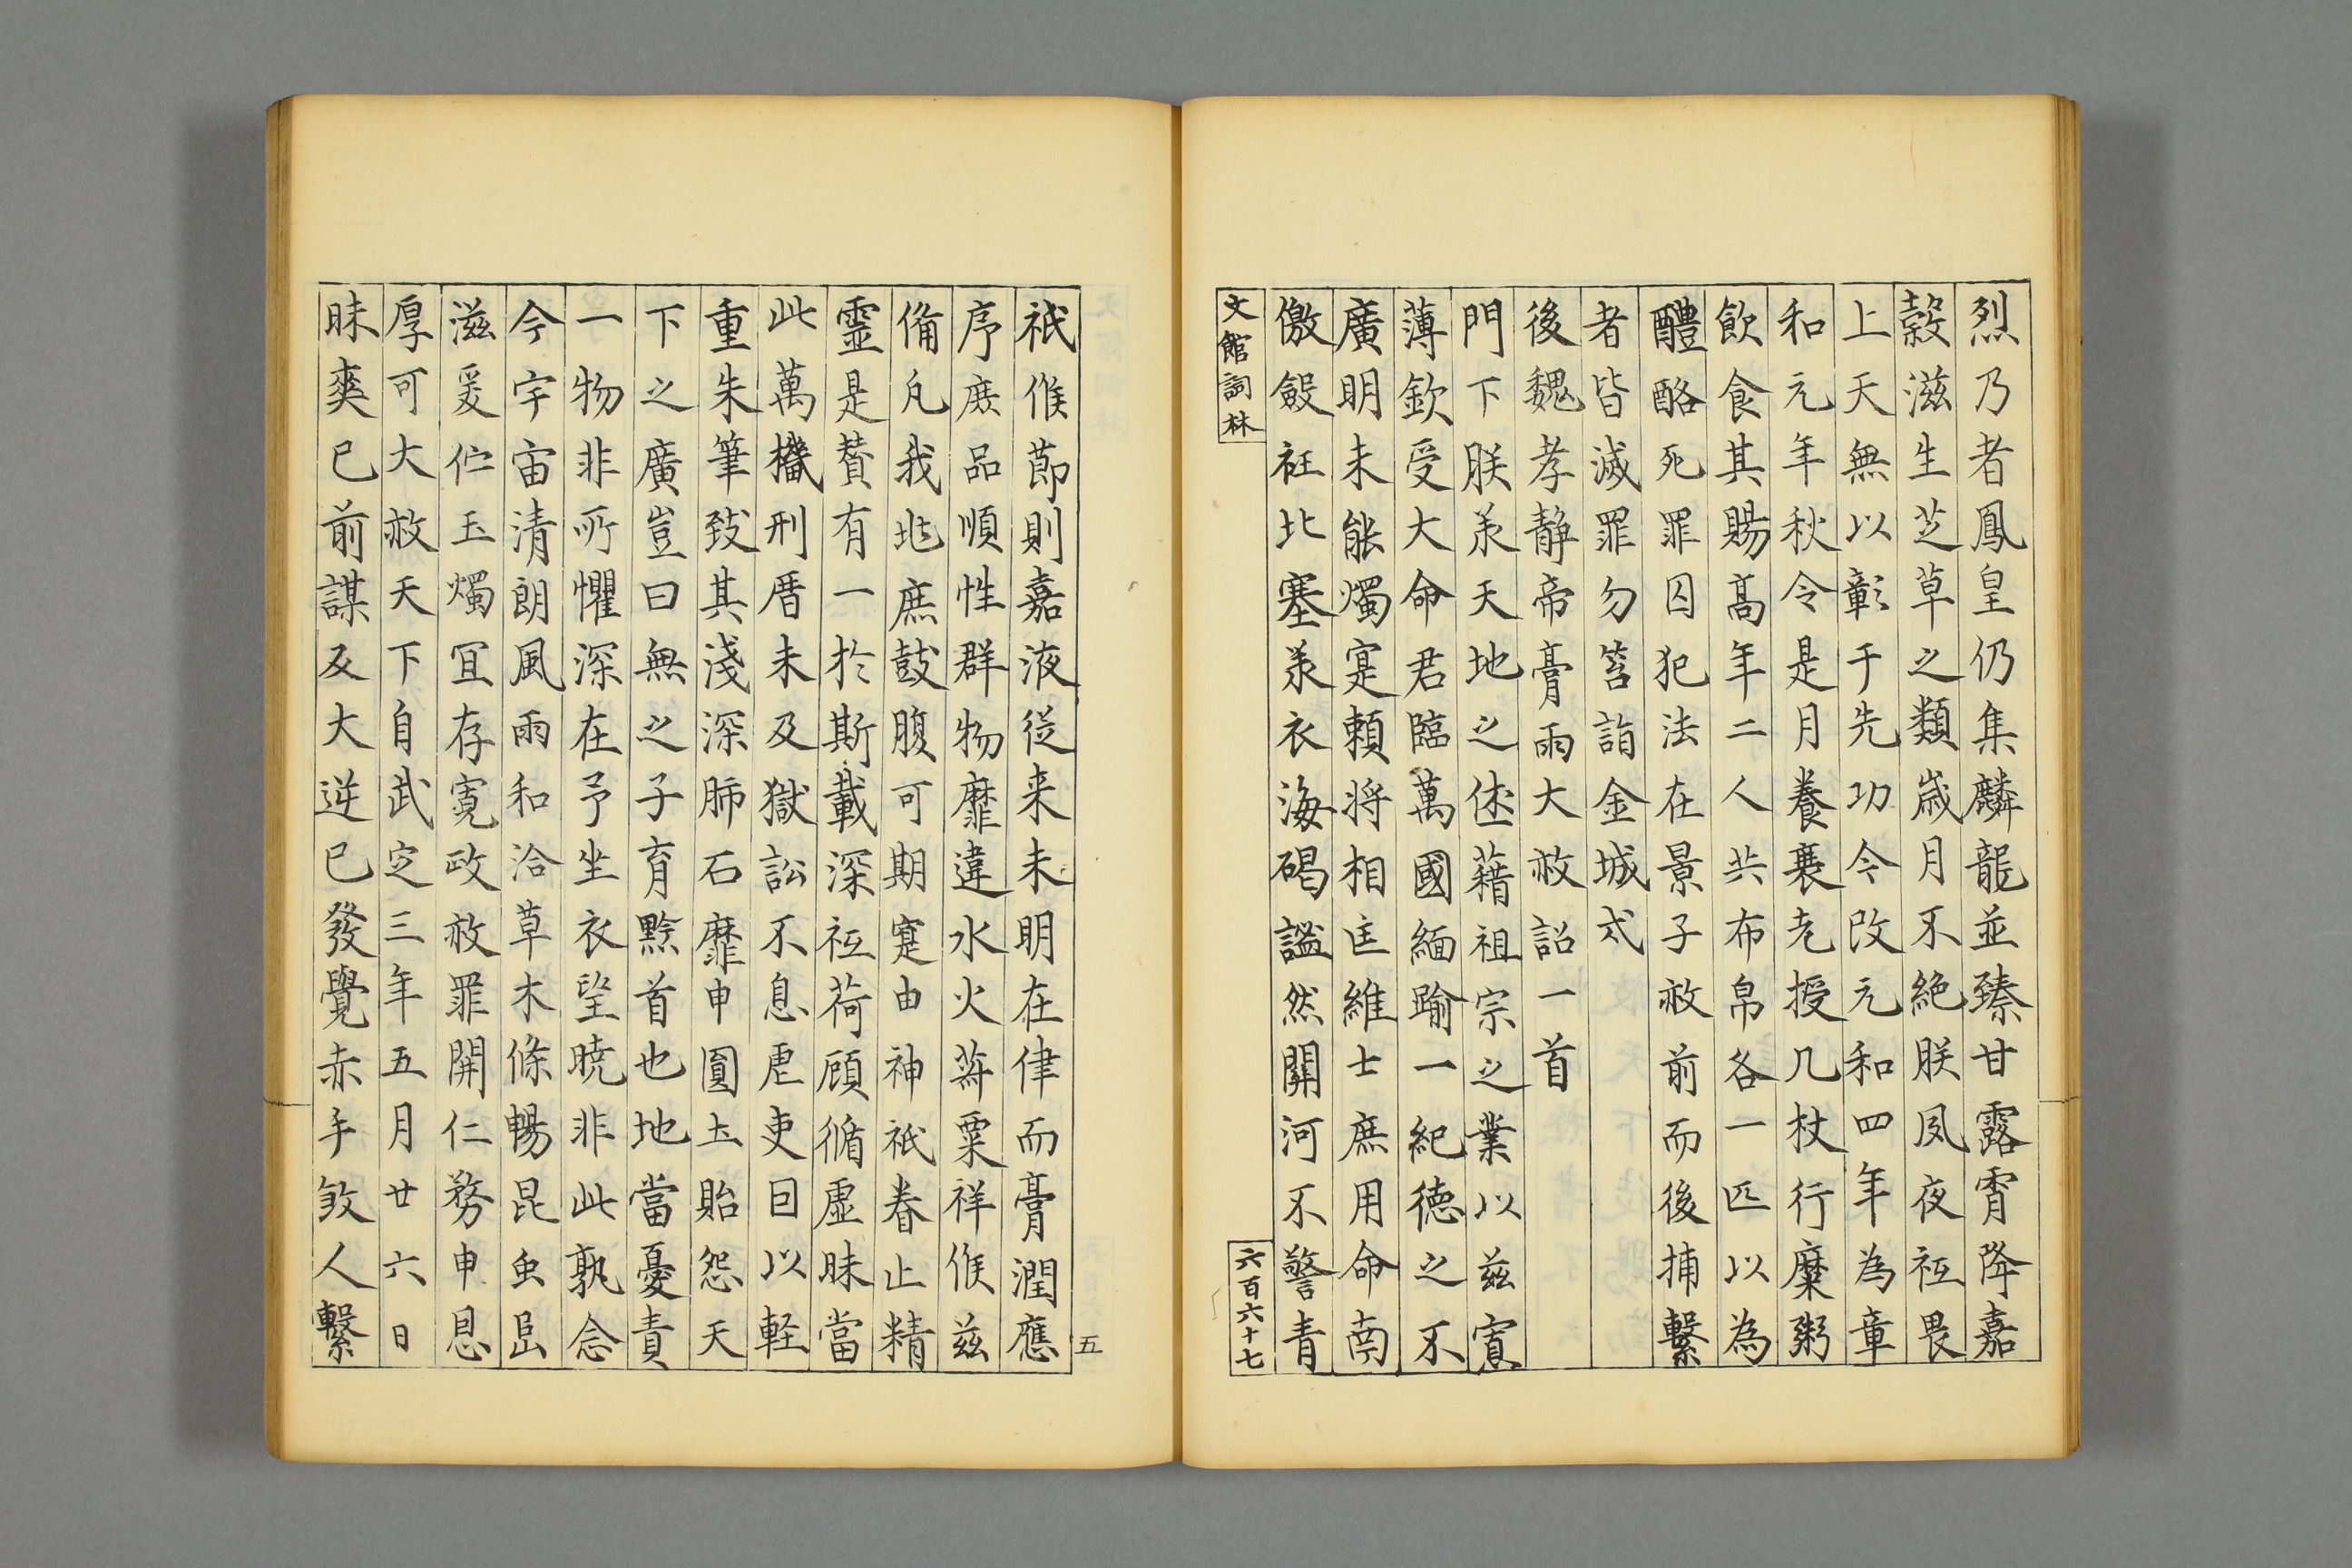 烈乃者鳳皇仍集麟龍並臻甘露霄降嘉
穀滋生芝草之類歳月不絶朕夙夜祗畏
上天無以彰于先功今改元和四年為章
和元年秋令是月養衰老授几杖行糜粥
飲食其賜髙年二人共布帛各一匹以為
醴酪死罪囚犯法在景子赦前而後捕繫
者皆滅罪勿笞詣金城式
後魏孝静帝膏雨大赦詔一首
門下朕羕天地之㑺藉祖宗之業以兹寡
薄欽受大命君臨萬國緬踰一紀徳之不
廣明未能燭寔頼将相匡維士庶用命南
儌㱃衽北塞羕衣海碣謐然關河不警青
文館詞林
六百六十七
祇候莭則嘉液従来未明在律而膏潤應
序庶品順性群物靡違水火蒋粟祥候兹
俻凢我兆庶鼓腹可期寔由神祇眷止精
靈是賛有一於斯載深祗荷顧循虚昧當
此萬機刑厝未及獄訟不息虐吏囙以軽
重朱筆致其淺深肺石靡申圓土貽怨天
下之廣豈曰無之子育黔首也地當憂責
一物非所懼深在予坐衣望曉非此孰念
今宇宙清朗風雨和洽草木條暢昆虫昌
滋爰伫玉燭冝存寛政赦罪開仁務申恩
厚可大赦天下自武定三年五月廿六日
昧爽已前謀反大逆已發覺赤手煞人繫
五